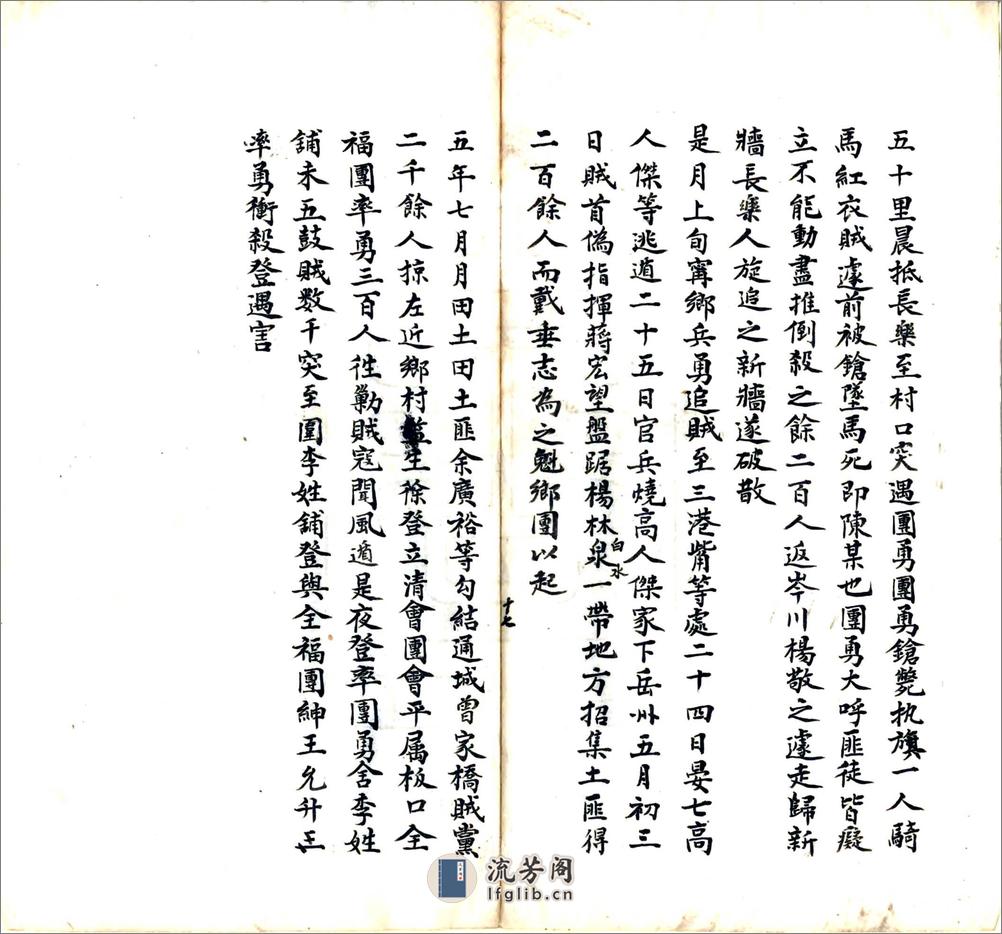 五十里晨抵長樂至村口突遇團勇團勇鎗斃执旗一人騎
馬紅衣賊遽前被鎗墜馬死即陳某也團勇大呼匪徒皆癡
立不能動盡推倒殺之餘二百人返岑川楊敬之遽走歸新
牆長樂人旋追之新牆遂破散
是月上旬甯鄉兵勇追賊至三港觜等處二十四日晏七高
人傑等逃遁二十五日官兵燒高人傑家下岳州五月初三
日賊首僞指揮蔣宏望盤踞楊林泉一帶地方招集土匪得
白水
二百餘人而戴垂志為之魁鄉團以起
十七
五年七月月田土田土匪余廣裕等勾結通城曾家橋賊黨
二千餘人掠左近鄉村監生徐登立清會團會平属板口全
福團率勇三百人徃勦賊寇聞風遁是夜登率團勇舍李姓
舖未五鼓賊数千突至圍李姓舖登與全福團紳王允升王
率勇衝殺登遇害
流芳阁
lfglib.cn